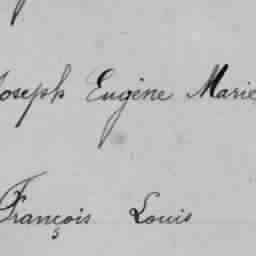 Joseph Eugène Marie
François Louis